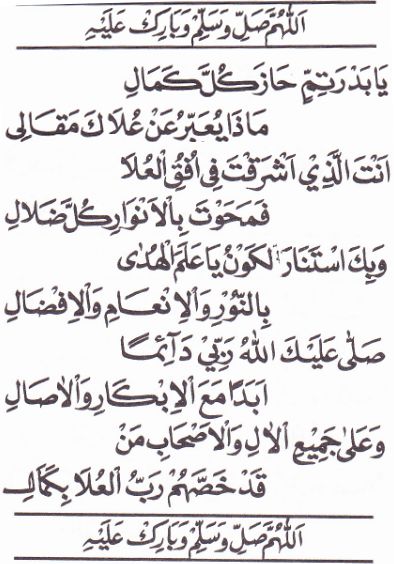 اَللّٰهُمَّ صَلِّ وَسَلِّمْ وَبَارِكْ عَلَيْهِ
يَا بَدْرَ تِمٍّ حَازَ كُلَّ كَمَالِ
مَاذَا يُعَبِّرُ عَنْ عُلَاكَ مَقَالِى
اَنْتَ الَّذِيْ اَشْرَقْتَ فِى اُفُقِ الْعُلَا
فَمَحَوْتَ بِالْاَنْوَارِ كُلَّ ضَلَالِ
وَبِكَ اسْتَنَارَ الْكَوْنُ يَا عَلَمَ الْهُدٰى
بِالنُّوْرِ وَالْاِنْعَامِ وَالْاِفْضَالِ
صَلّٰى عَلَيْكَ اللهُ رَبِّيْ دَآئِمًا
اَبَدًا مَعَ الْاِبْكَارِ وَالْاٰصَالِ
وَعَلٰى جَمِيْعِ الْاٰلِ وَالْاَصْحَابِ مَنْ
قَدْ خَصَّهُمْ رَبُّ الْعُلَا بِكَمَالِ
اَللّٰهُمَّ صَلِّ وَسَلِّمْ وَبَارِكْ عَلَيْهِ